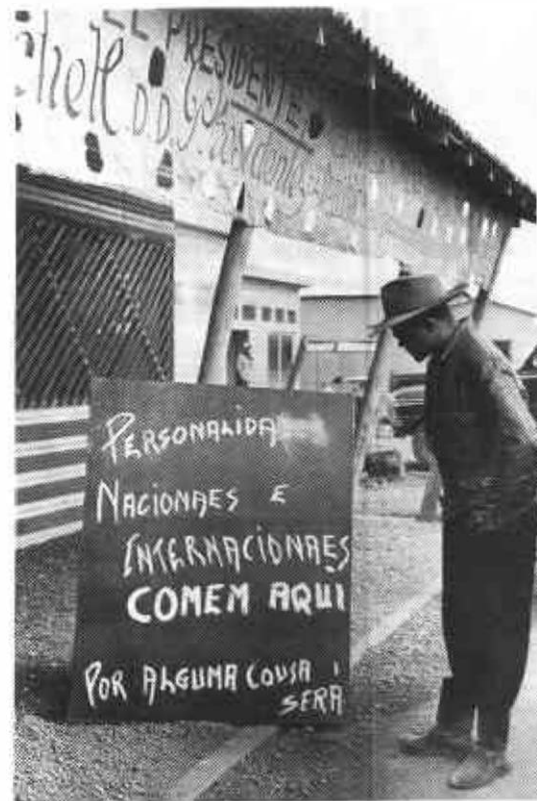 EL PRESIDENTE
D.D. Presidente
PERSONALIDA
NACIONAES E
INTERNACIONAES
COMEM AQUI
POR ALGUMA COUSA
SERÁ